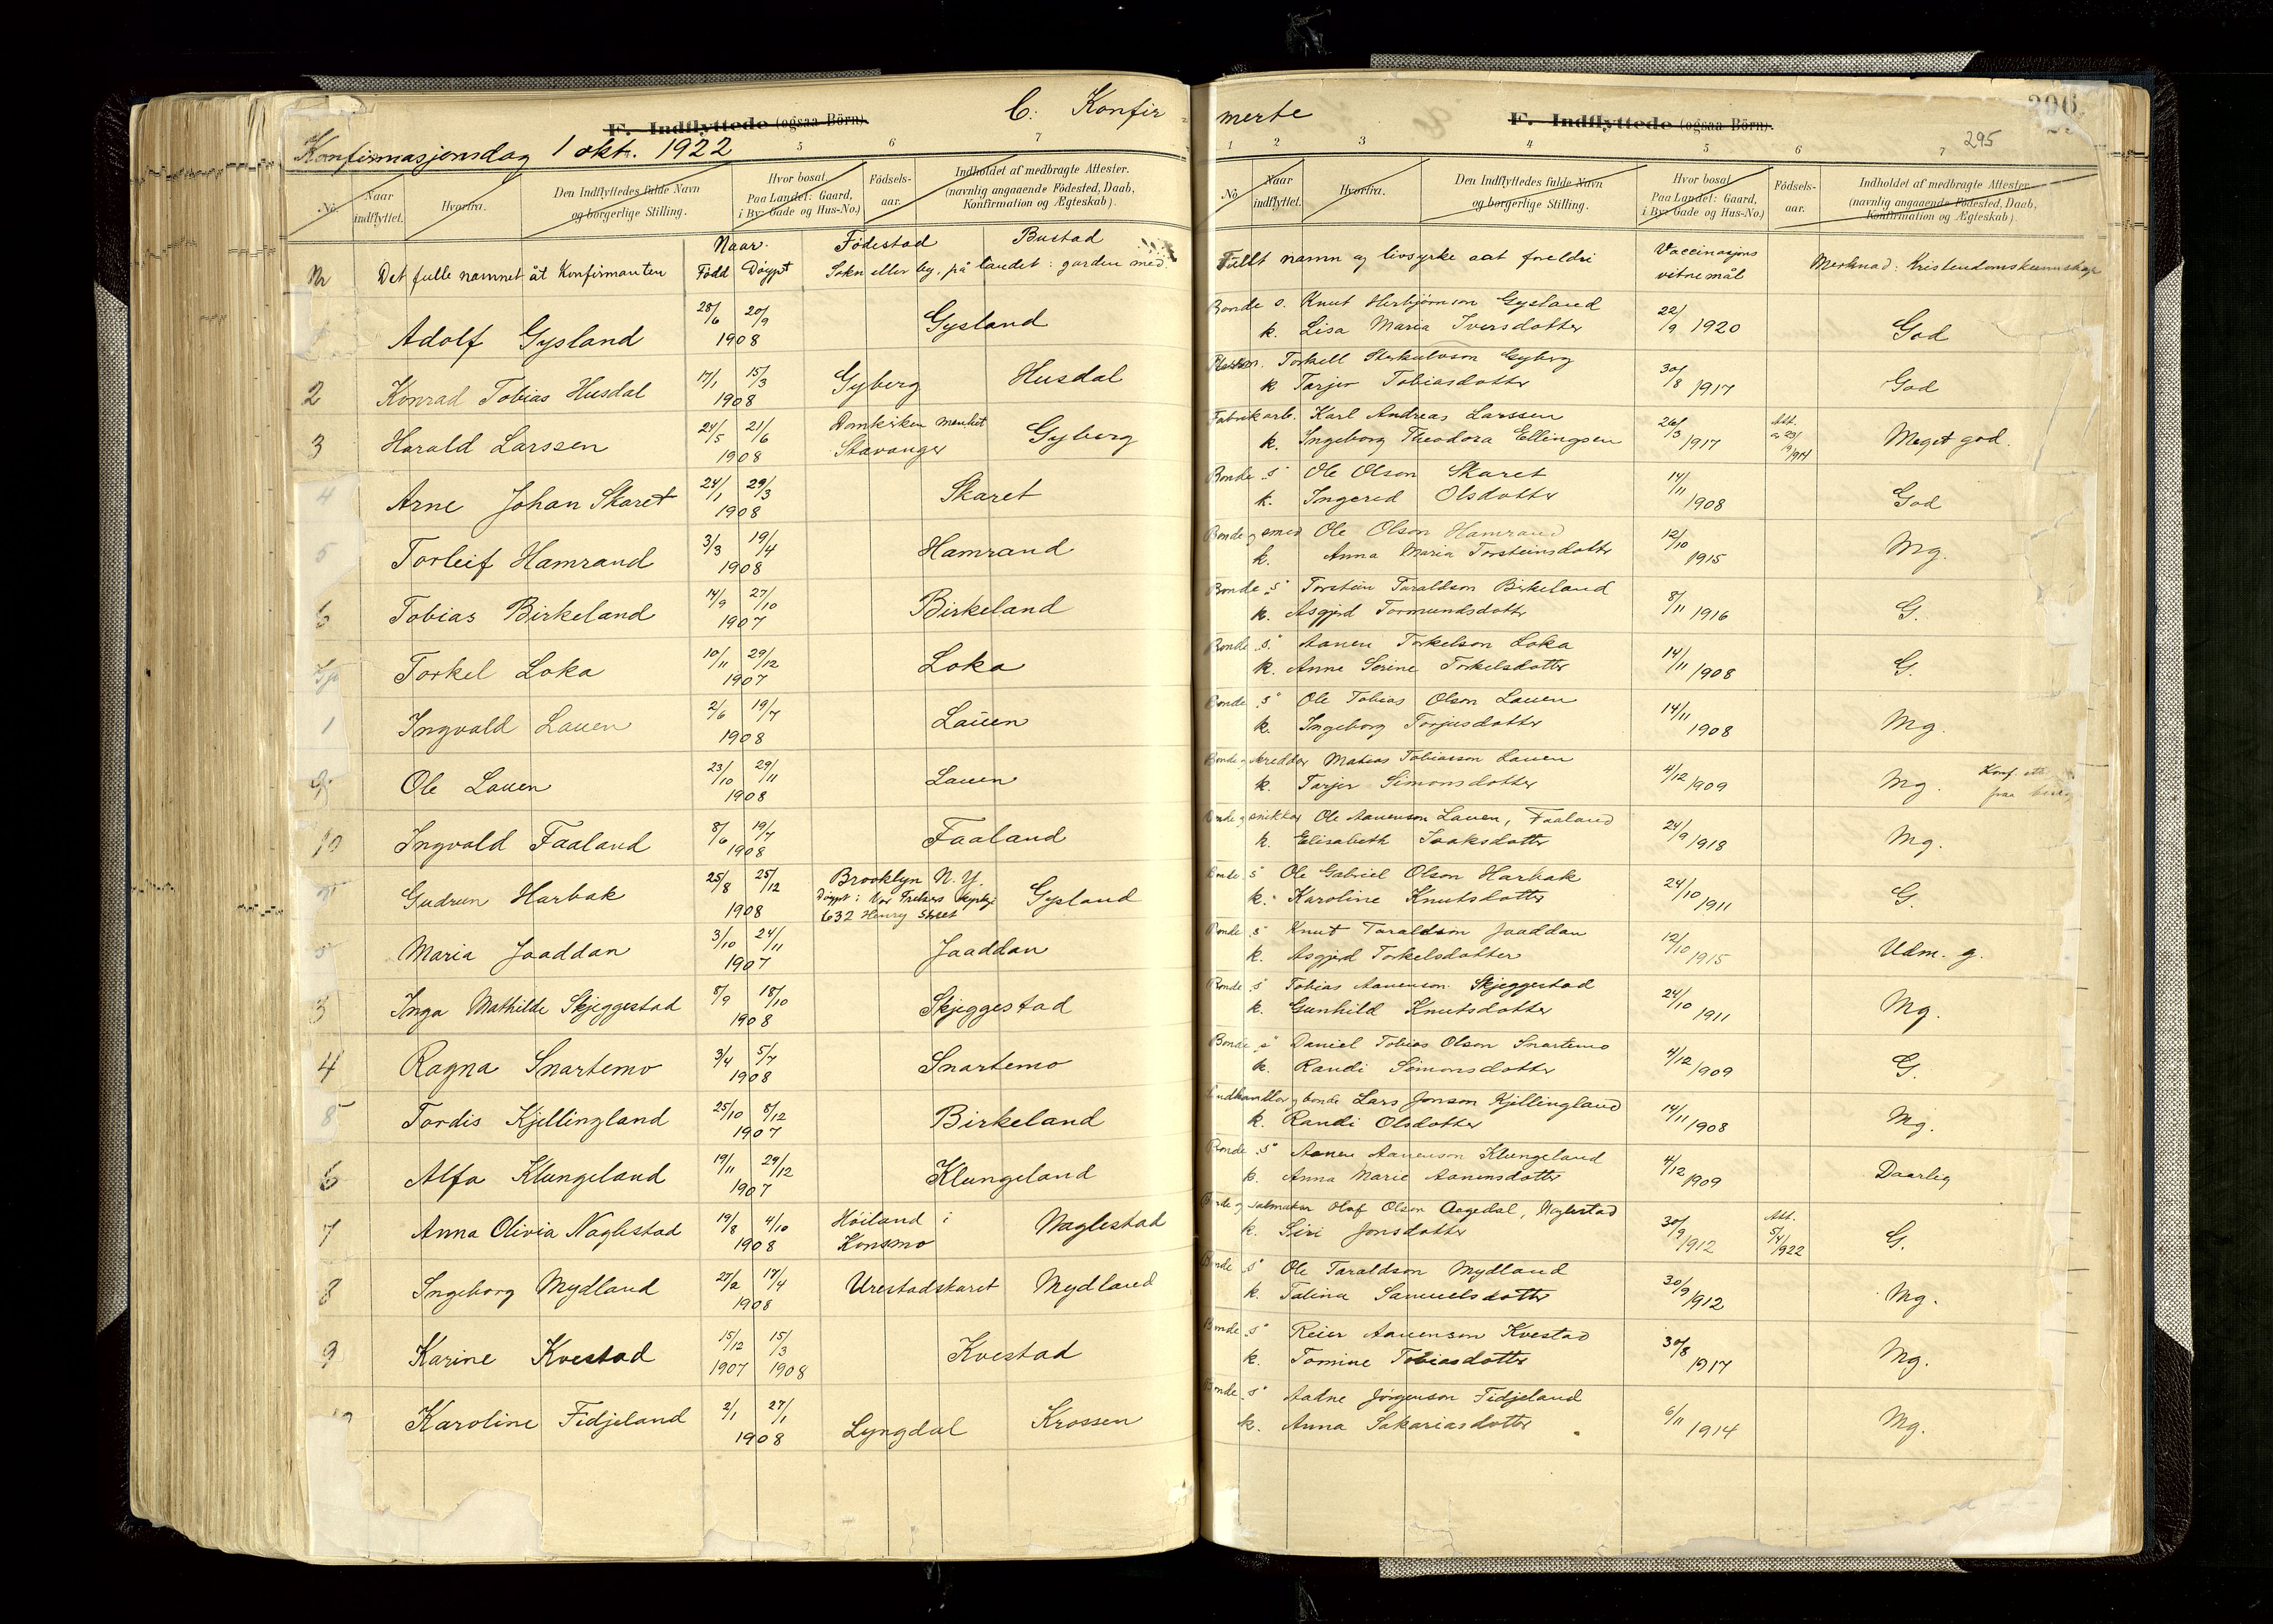 C. Konfir-
merte
F. Indflyttede (ogsaa Börn).
Konfirmasjonsdag 1 okt. 1922
5 6 7
No. Naar indflyttet. Hvorfra. Den Indflyttedes fulde Navn og borgerlige Stilling. Hvor bosat. Paa Landet: Gaard, i By: Gade og Hus-No.) Födsels-aar. Indholdet af medbragte Attester. (navnlig angaaende Födested, Daab, Konfirmation og Ægteskab).
Nr Det fulle namnet åt Konfirmanten Naar Född Döypt Födestad Bustad Sokn eller by, på landet: garden med
1 Adolf Gysland 28/6 20/9 1908 Gysland
2 Konrad Tobias Husdal 17/1 15/3 1908 Gyberg Husdal
3 Harald Larssen 24/5 21/6 1908 Domkirken menhet Stavanger Gyberg
4 Arne Johan Skaret 24/1 29/3 1908 Skaret
5 Torleif Hamrand 3/3 19/4 1908 Hamrand
6 Tobias Birkeland 14/9 27/10 1907 Birkeland
Torkel Loka 10/11 29/12 1907 Loka
Ingvald Lauen 2/6 19/7 1908 Lauen
9 Ole Lauen 23/10 29/11 1908 Lauen
10 Ingvald Faaland 8/6 19/7 1908 Faaland
Gudrun Harbak 25/8 25/12 1908 Brooklyn N. Y. Döypt i Vor Frelsers 632 Henry Street Gysland
Maria Jaaddan 3/10 24/11 1907 Jaaddan
3 Inga Mathilde Skjeggestad 8/9 18/10 1908 Skjeggestad
4 Ragna Snartemo 3/4 5/7 1908 Snartemo
5 Tordis Kjellingland 25/10 8/12 1907 Birkeland
6 Alfa Klungeland 19/11 29/12 1907 Klungeland
7 Anna Olivia Naglestad 19/8 4/10 1908 Höiland i Konsmo Naglestad
8 Ingeborg Mydland 27/2 17/4 1908 Urestadskaret Mydland
9 Karine Kvestad 15/12 1907 15/3 1908 Kvestad
10 Karoline Fidjeland 2/1 27/1 1908 Lyngdal Krossen
F. Indflyttede (ogsaa Börn).
296
295
1 2 3 4 5 6 7
No. Naar indflyttet. Hvorfra. Den Indflyttedes fulde Navn og borgerlige Stilling. Hvor bosat. Paa Landet: Gaard, i By: Gade og Hus-No.) Födsels-aar. Indholdet af medbragte Attester. (navnlig angaaende Födested, Daab, Konfirmation og Ægteskab).
Fullt namn og livsyrke aat foreldri Vaccinasjons vitnemål Merknad: Kristendomskunnskap
Bonde s. Knut Herbjørnson Gysland
k. Lisa Maria Iversdotter 22/9 1920 God
Torkell Sterkulvson Gyberg
k Tarjer Tobiasdotter 30/8 1917 God
Fabrikarb. Karl Andreas Larssen
k. Ingeborg Theodora Ellingsen 26/3 1917 Att. 1914 Meget god.
Bonde s. Ole Olson Skaret
k. Ingered Olsdotter 14/11 1908 God
Bonde og smed Ole Olson Hamrand
k. Anna Maria Torsteinsdotter 12/10 1915 Mg.
Bonde s. Torstein Taraldson Birkeland
k. Asgjerd Tormundsdotter 8/11 1916 G.
Bonde s. Aanen Torkelson Loka
k. Anne Serine Torkelsdotter 14/11 1908 G.
Bonde s. Ole Tobias Olson Lauen
k. Ingeborg Torjusdotter 14/11 1908 Mg.
Bonde og skredder Matias Tobiasson Lauen
k. Tarjer Simonsdotter 4/12 1909 Mg. Konf.
Bonde og snikkar Ole Aanenson Lauen, Faaland
k. Elisabeth Isaksdotter 24/9 1918 Mg.
Bonde s Ole Gabriel Olson Harbak
k. Karoline Knutsdotter 24/10 1911 G.
Bonde s Knut Taraldson Jaaddan
k. Asgjerd Torkelsdotter 12/10 1915 Udm. g.
Bonde s Tobias Aanenson Skjeggestad
k. Gunhild Knutsdotter 24/10 1911 Mg.
Bonde s Daniel Tobias Olson Snartemo
k. Randi Simonsdotter 4/12 1909 G.
Landhandler og bonde Lars Jonson Kjellingland
k. Randi Olsdotter 14/11 1908 Mg.
Bonde s Aanen Aanenson Klungeland
k. Anna Marie Aanensdotter 4/12 1909 Daarleg
Bonde og salmakar Olaf Olson Aagedal, Naglestad
k. Siri Jonsdotter 30/9 1912 Att. 5/4 1922 G.
Bonde s Ole Taraldson Mydland
k. Talina Samuelsdotter 30/9 1912 Mg.
Bonde s Reier Aanenson Kvestad
k. Tomine Tobiasdotter 30/8 1917 Mg.
Bonde s Aadne Jörgenson Fidjeland
k. Anna Sakariasdotter 6/11 1914 Mg.